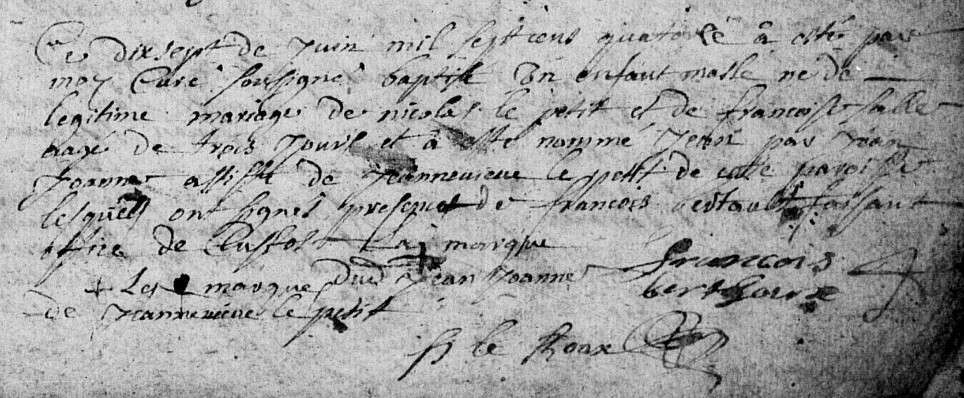 Ce dix sept de Juin mil septcens quatorse à esté par
moy Curé soussigné baptisé Un enfant masle né de
legitime mariage de nicolas le petit et de francoise salle
aagé de trois Jours et à esté nommé Jean par Jean
Joannes assisté de Jeannevieve le petit de cette paroisse
lesquels ont signés presence de francois bertault faisant
office de Clerc marque
+ Les marque dud Jean Joannes francois
de Jeannevieve le petit
le Roux